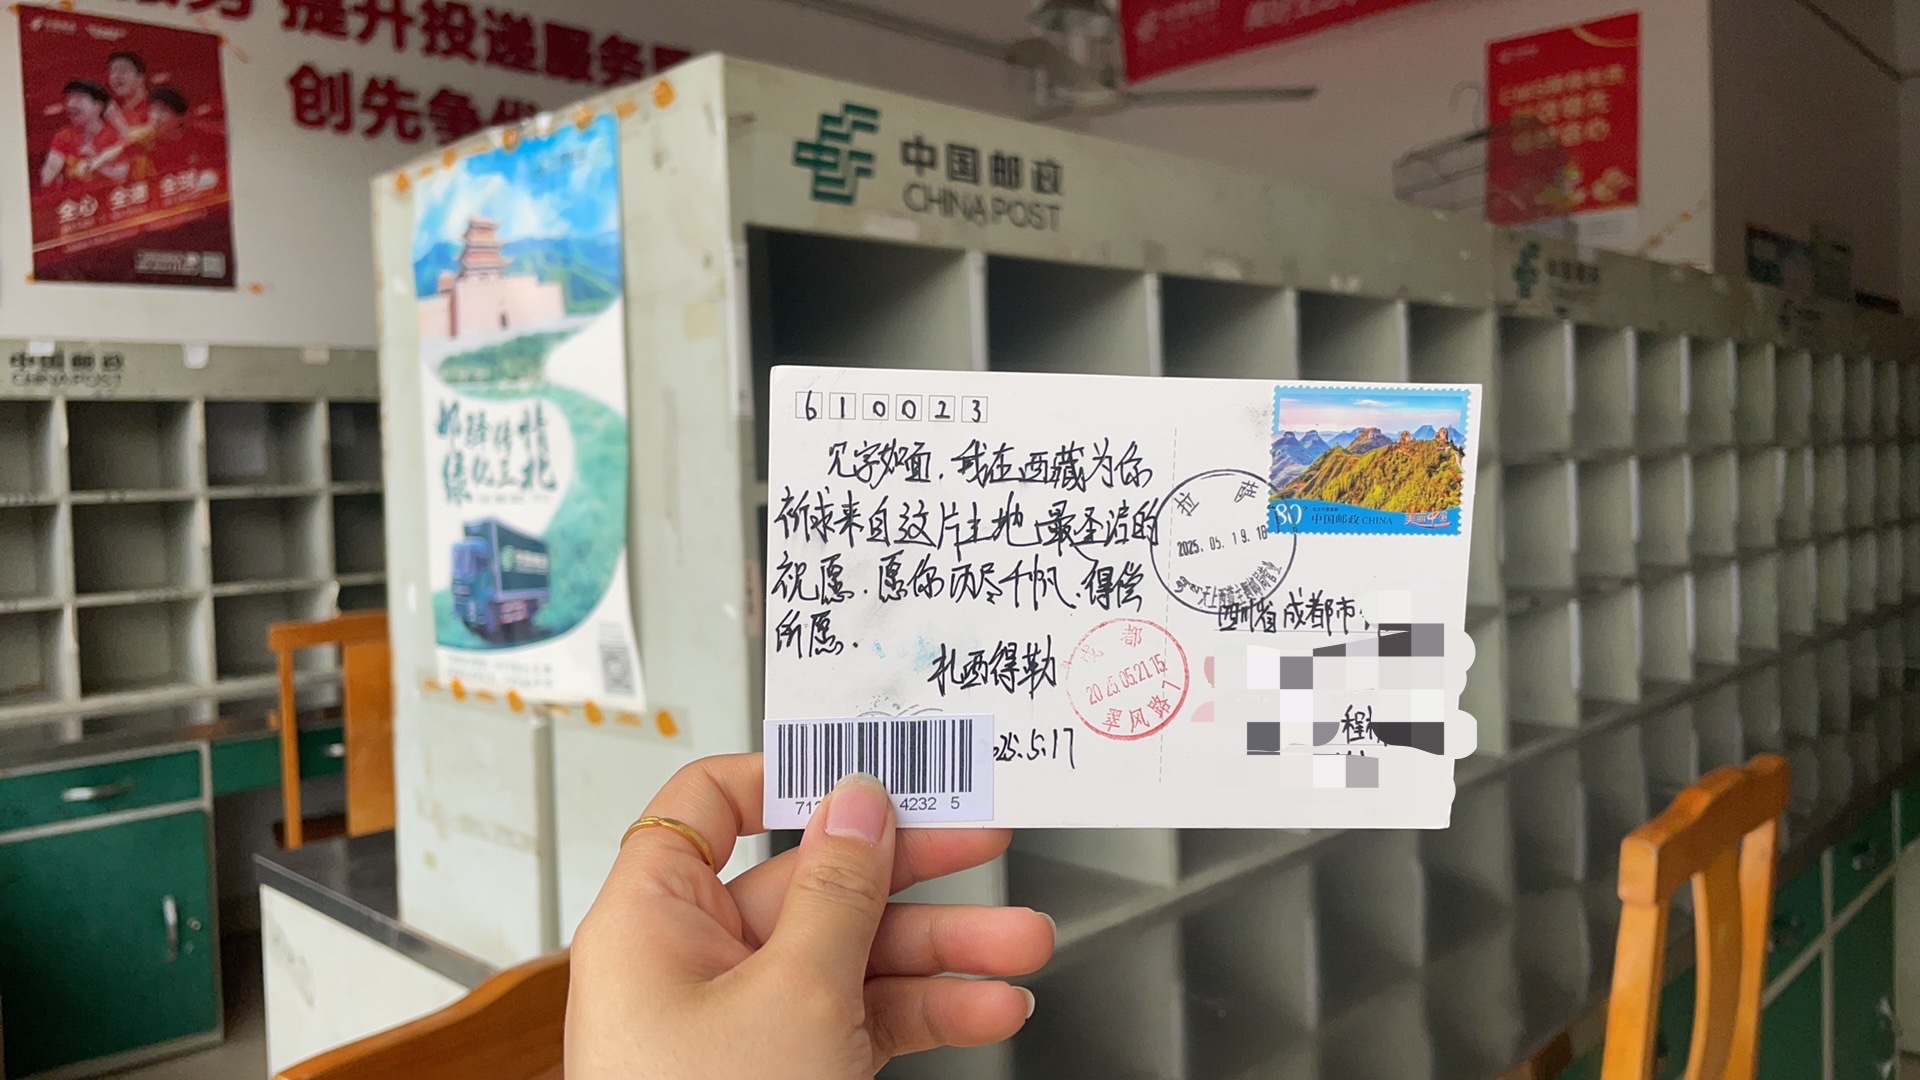 提升投递服务
创先争
全心 全速 全球
中国邮政
CHINA POST
中国邮政
CHINA POST
610023
见字如面,我在西藏为你
祈求来自这片土地最圣洁的
祝愿.愿你历尽千帆.得偿
所愿.
扎西得勒
25.5.17
712
4232 5
80 中国邮政 CHINA 美丽中国
拉萨
2025.05.19.18
天上西藏主题邮局
四川省成都市
程
成都
2025.05.27.15
翠风路